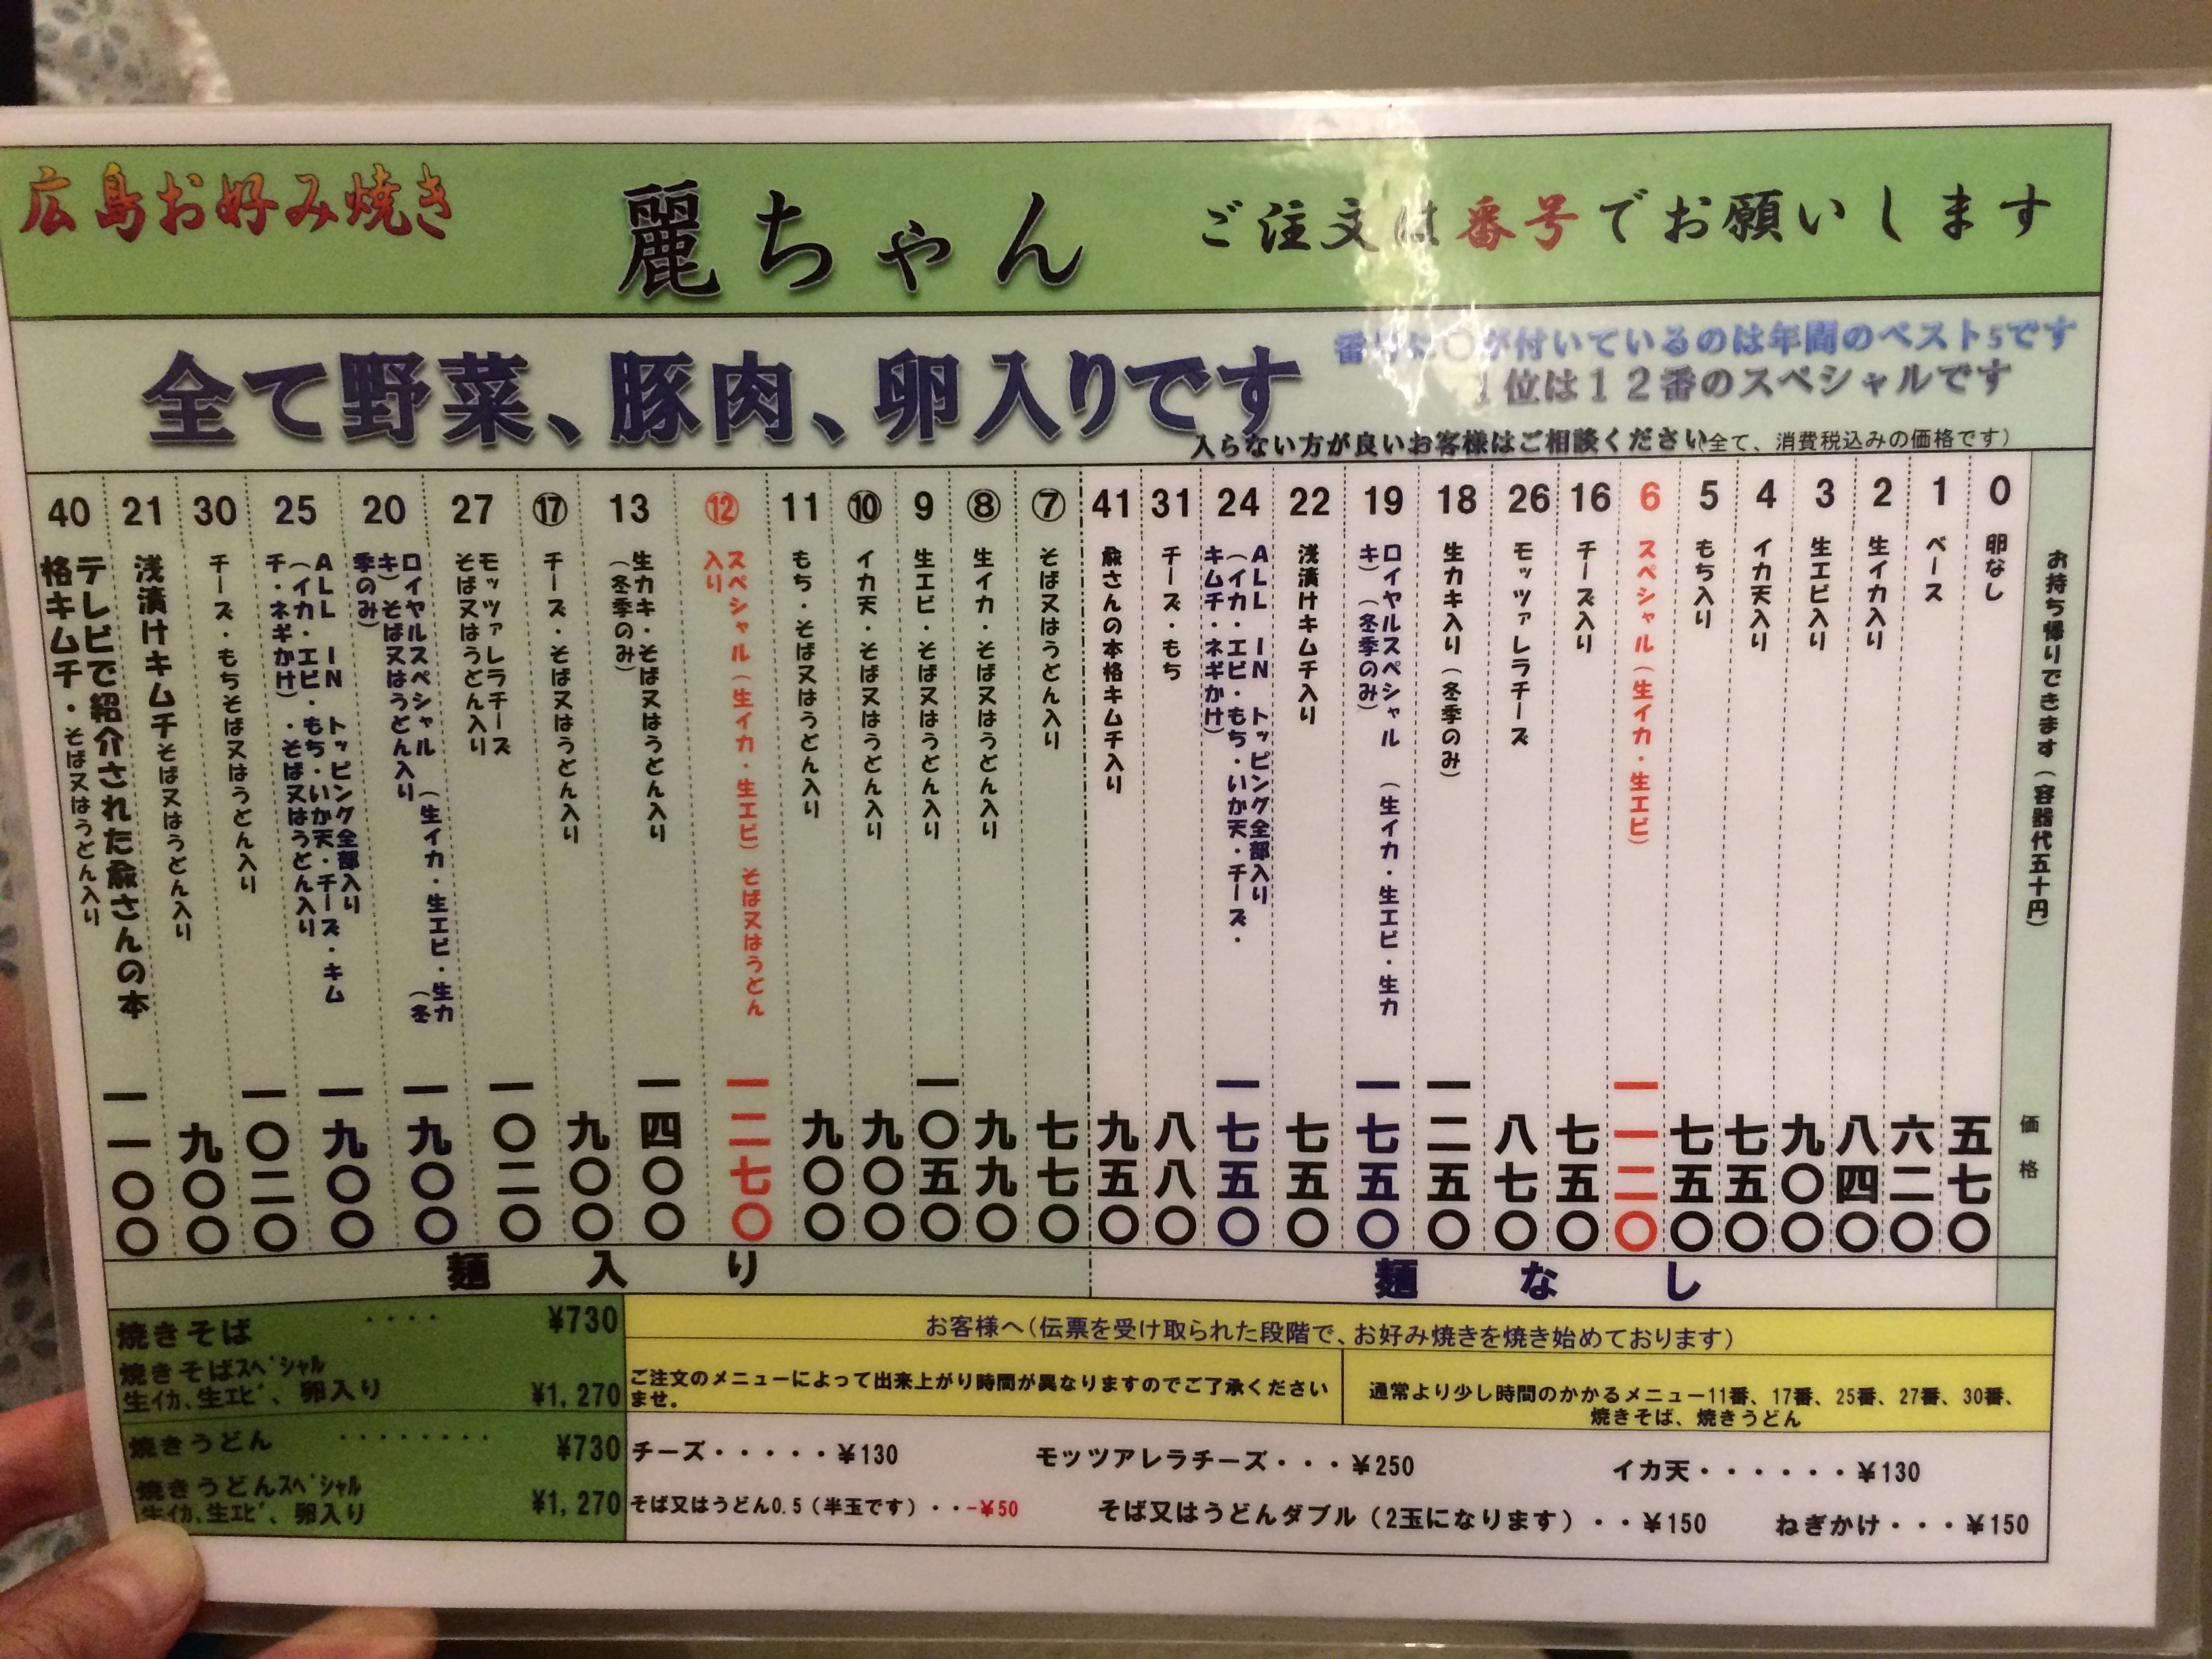 広島お好み焼き
麗ちゃん
ご注文は番号でお願いします
全て野菜、豚肉、卵入りです
番号に〇が付いているのは年間のベスト5です
1位は12番のスペシャルです
入らない方が良いお客様はご相談ください(全て、消費税込みの価格です)
お持ち帰りできます(容器代五十円)
価格
0 卵なし 五七〇
1 ベース 六二〇
2 生イカ入り 八四〇
3 生エビ入り 九〇〇
4 イカ天入り 七五〇
5 もち入り 七五〇
6 スペシャル(生イカ・生エビ) 一一二〇
16 チーズ入り 七五〇
26 モッツァレラチーズ 八七〇
18 生カキ入り(冬季のみ) 一二五〇
19 ロイヤルスペシャル (生イカ・生エビ・生カ
キ) (冬季のみ) 一七五〇
22 浅漬けキムチ入り 七五〇
24 ALL IN トッピング全部入り
(イカ・エビ・もち・いか天・チーズ・
キムチ・ネギかけ) 一七五〇
31 チーズ・もち 八八〇
41 兪さんの本格キムチ入り 九五〇
麺なし
⑦ そば又はうどん入り 七七〇
⑧ 生イカ・そば又はうどん入り 九九〇
9 生エビ・そば又はうどん入り 一〇五〇
⑩ イカ天・そば又はうどん入り 九〇〇
11 もち・そば又はうどん入り 九〇〇
⑫ スペシャル(生イカ・生エビ) そば又はうどん
入り 一二七〇
13 生カキ・そば又はうどん入り
(冬季のみ) 一四〇〇
⑰ チーズ・そば又はうどん入り 九〇〇
27 モッツァレラチーズ
そば又はうどん入り 一〇二〇
20 ロイヤルスペシャル (生イカ・生エビ・生カ
キ) そば又はうどん入り (冬
季のみ) 一九〇〇
25 ALL IN トッピング全部入り
(イカ・エビ・もち・いか天・チーズ・キム
チ・ネギかけ)・そば又はうどん入り 一九〇〇
30 チーズ・もちそば又はうどん入り 一〇二〇
21 浅漬けキムチそば又はうどん入り 九〇〇
40 テレビで紹介された兪さんの本
格キムチ・そば又はうどん入り 一一〇〇
麺入り
焼きそば ‥‥ ¥730
焼きそばｽﾍﾟｼｬﾙ
生ｲｶ､生ｴﾋﾞ、卵入り ¥1,270
焼きうどん ‥‥‥‥ ¥730
焼きうどんｽﾍﾟｼｬﾙ
生ｲｶ､生ｴﾋﾞ、卵入り ¥1,270
お客様へ(伝票を受け取られた段階で、お好み焼きを焼き始めております)
ご注文のメニューによって出来上がり時間が異なりますのでご了承ください
ませ。
通常より少し時間のかかるメニュー11番、17番、25番、27番、30番、
焼きそば、焼きうどん
チーズ・・・・・¥130
モッツアレラチーズ・・・¥250
イカ天・・・・・・¥130
そば又はうどん0.5(半玉です)・・-¥50
そば又はうどんダブル(2玉になります)・・¥150
ねぎかけ・・・¥150